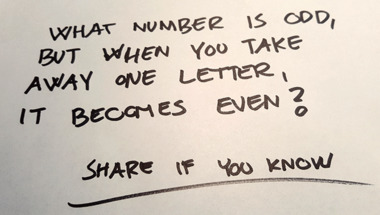 WHAT NUMBER IS ODD,
BUT WHEN YOU TAKE
AWAY ONE LETTER,
IT BECOMES EVEN?
SHARE IF YOU KNOW